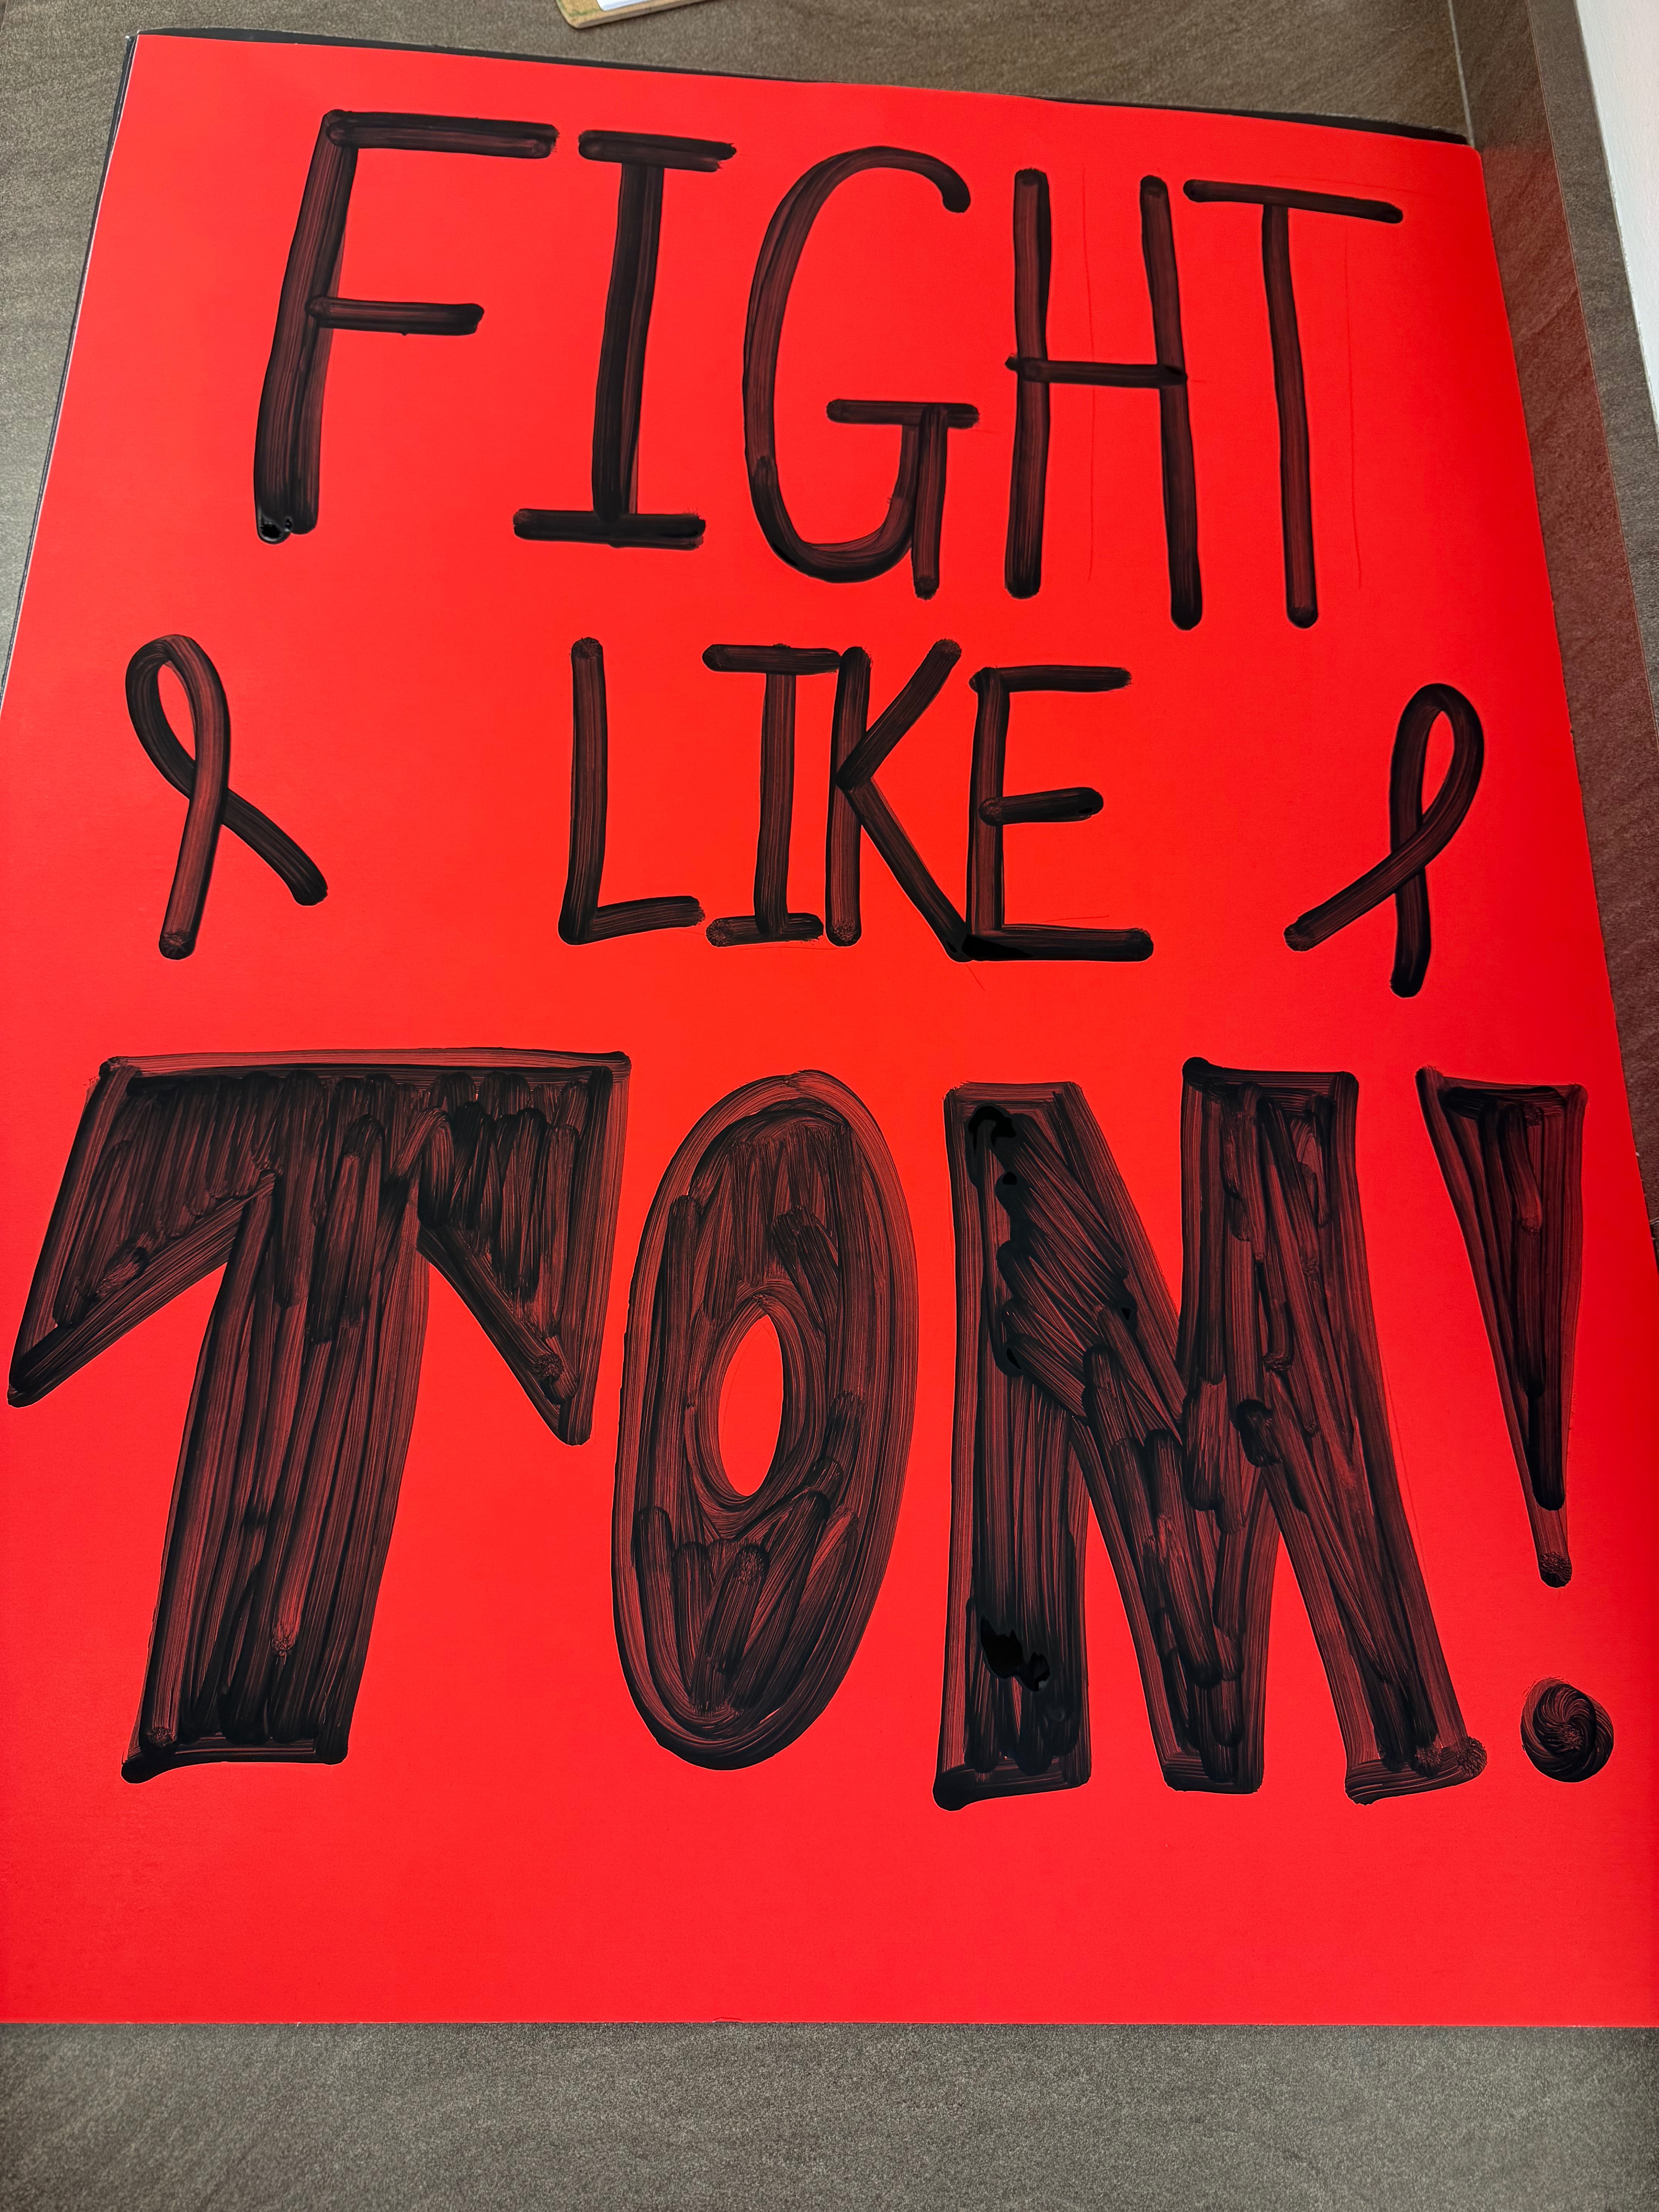 FIGHT
LIKE
TOM!